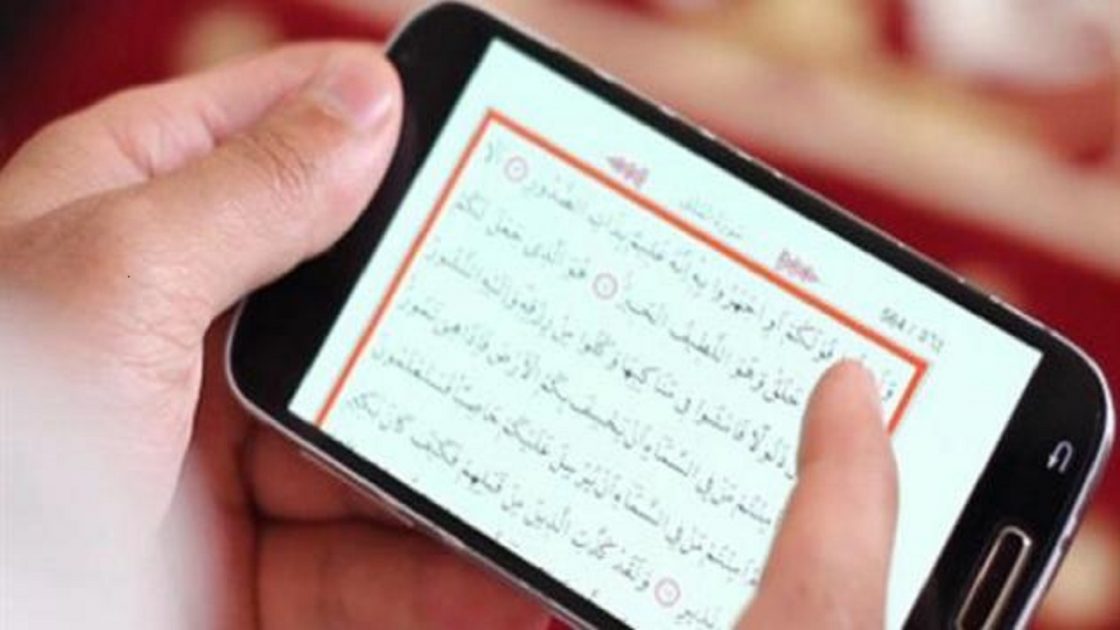 سورة الملك
قَوْلَكُمْ أَوِ اجْهَرُوا بِهِ إِنَّهُ عَلِيمٌ بِذَاتِ الصُّدُورِ أَلَا
خَلَقَ وَهُوَ اللَّطِيفُ الْخَبِيرُ هُوَ الَّذِي جَعَلَ لَكُمُ
ذَلُولًا فَامْشُوا فِي مَنَاكِبِهَا وَكُلُوا مِن رِّزْقِهِ وَإِلَيْهِ النُّشُورُ
مَّن فِي السَّمَاءِ أَن يَخْسِفَ بِكُمُ الْأَرْضَ فَإِذَا هِيَ تَمُورُ
أَمِنتُم مَّن فِي السَّمَاءِ أَن يُرْسِلَ عَلَيْكُمْ حَاصِبًا فَسَتَعْلَمُونَ
نَذِيرِ وَلَقَدْ كَذَّبَ الَّذِينَ مِن قَبْلِهِمْ فَكَيْفَ كَانَ نَكِيرِ